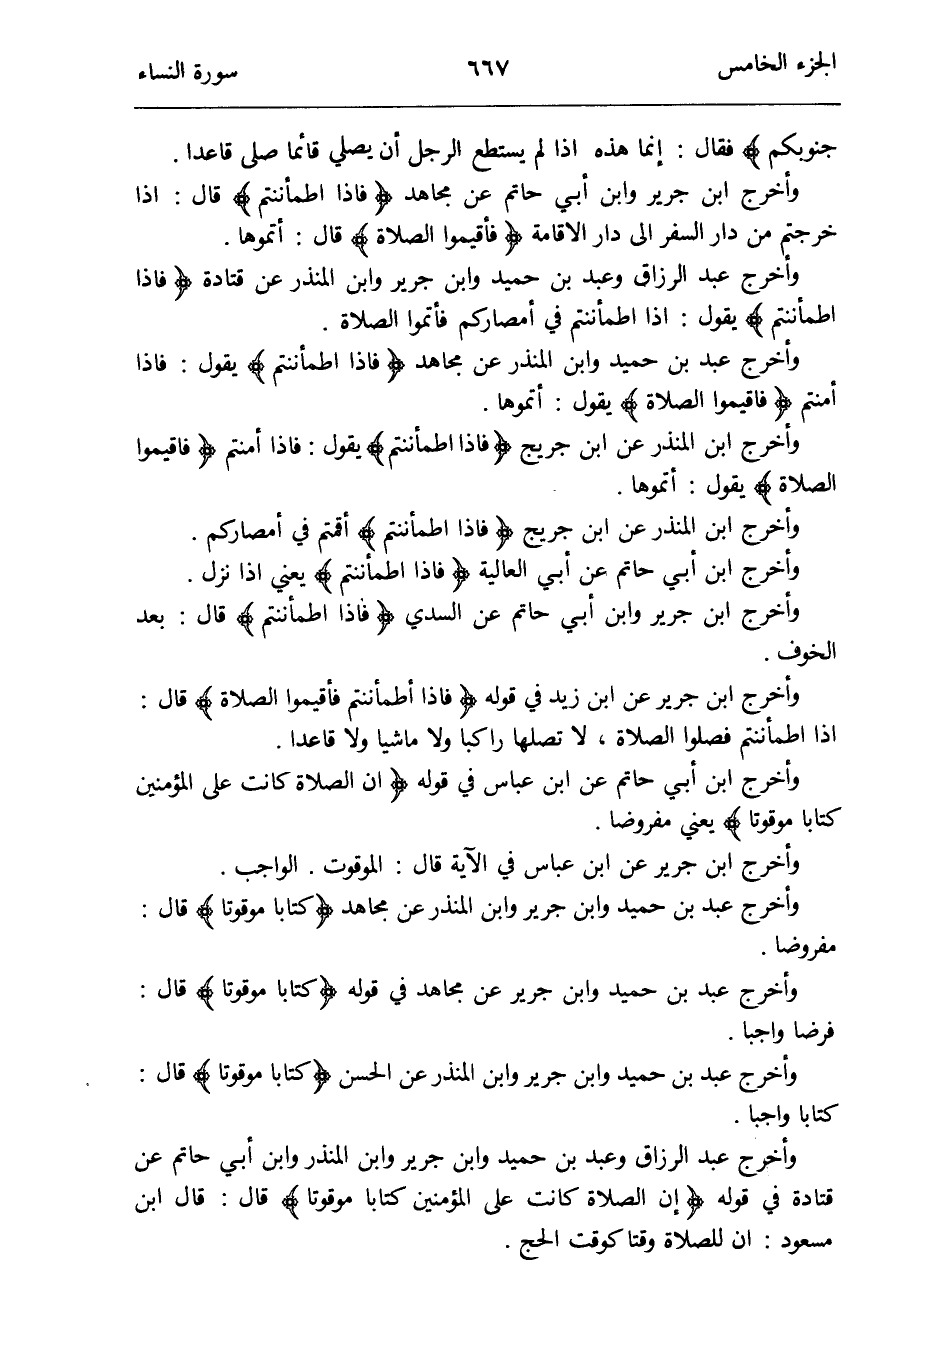 الجزء الخامس ٦٦٧ سورة النساء
جنوبكم ﴾ فقال : إنما هذه اذا لم يستطع الرجل أن يصلي قائما صلى قاعدا .
وأخرج ابن جرير وابن أبي حاتم عن مجاهد ﴿ فاذا اطمأننتم ﴾ قال : اذا
خرجتم من دار السفر الى دار الاقامة ﴿ فأقيموا الصلاة ﴾ قال : أتموها .
وأخرج عبد الرزاق وعبد بن حميد وابن جرير وابن المنذر عن قتادة ﴿ فاذا
اطمأننتم ﴾ يقول : اذا اطمأننتم في أمصاركم فأتموا الصلاة .
وأخرج عبد بن حميد وابن المنذر عن مجاهد ﴿ فاذا اطمأننتم ﴾ يقول : فاذا
أمنتم ﴿ فاقيموا الصلاة ﴾ يقول : أتموها .
وأخرج ابن المنذر عن ابن جريج ﴿ فاذا اطمأننتم ﴾ يقول : فاذا أمنتم ﴿ فاقيموا
الصلاة ﴾ يقول : أتموها .
وأخرج ابن المنذر عن ابن جريج ﴿ فاذا اطمأننتم ﴾ أقمتم في أمصاركم .
وأخرج ابن أبي حاتم عن أبي العالية ﴿ فاذا اطمأننتم ﴾ يعني اذا نزل .
وأخرج ابن جرير وابن أبي حاتم عن السدي ﴿ فاذا اطمأننتم ﴾ قال : بعد
الخوف .
وأخرج ابن جرير عن ابن زيد في قوله ﴿ فاذا أطمأننتم فأقيموا الصلاة ﴾ قال :
اذا اطمأننتم فصلوا الصلاة ، لا تصلها راكبا ولا ماشيا ولا قاعدا .
وأخرج ابن أبي حاتم عن ابن عباس في قوله ﴿ ان الصلاة كانت على المؤمنين
كتابا موقوتا ﴾ يعني مفروضا .
وأخرج ابن جرير عن ابن عباس في الآية قال : الموقوت . الواجب .
وأخرج عبد بن حميد وابن جرير وابن المنذر عن مجاهد ﴿ كتابا موقوتا ﴾ قال :
مفروضا .
وأخرج عبد بن حميد وابن جرير عن مجاهد في قوله ﴿ كتابا موقوتا ﴾ قال :
فرضا واجبا .
وأخرج عبد بن حميد وابن جرير وابن المنذر عن الحسن ﴿ كتابا موقوتا ﴾ قال :
كتابا واجبا .
وأخرج عبد الرزاق وعبد بن حميد وابن جرير وابن المنذر وابن أبي حاتم عن
قتادة في قوله ﴿ إن الصلاة كانت على المؤمنين كتابا موقوتا ﴾ قال : قال ابن
مسعود : ان للصلاة وقتا كوقت الحج .